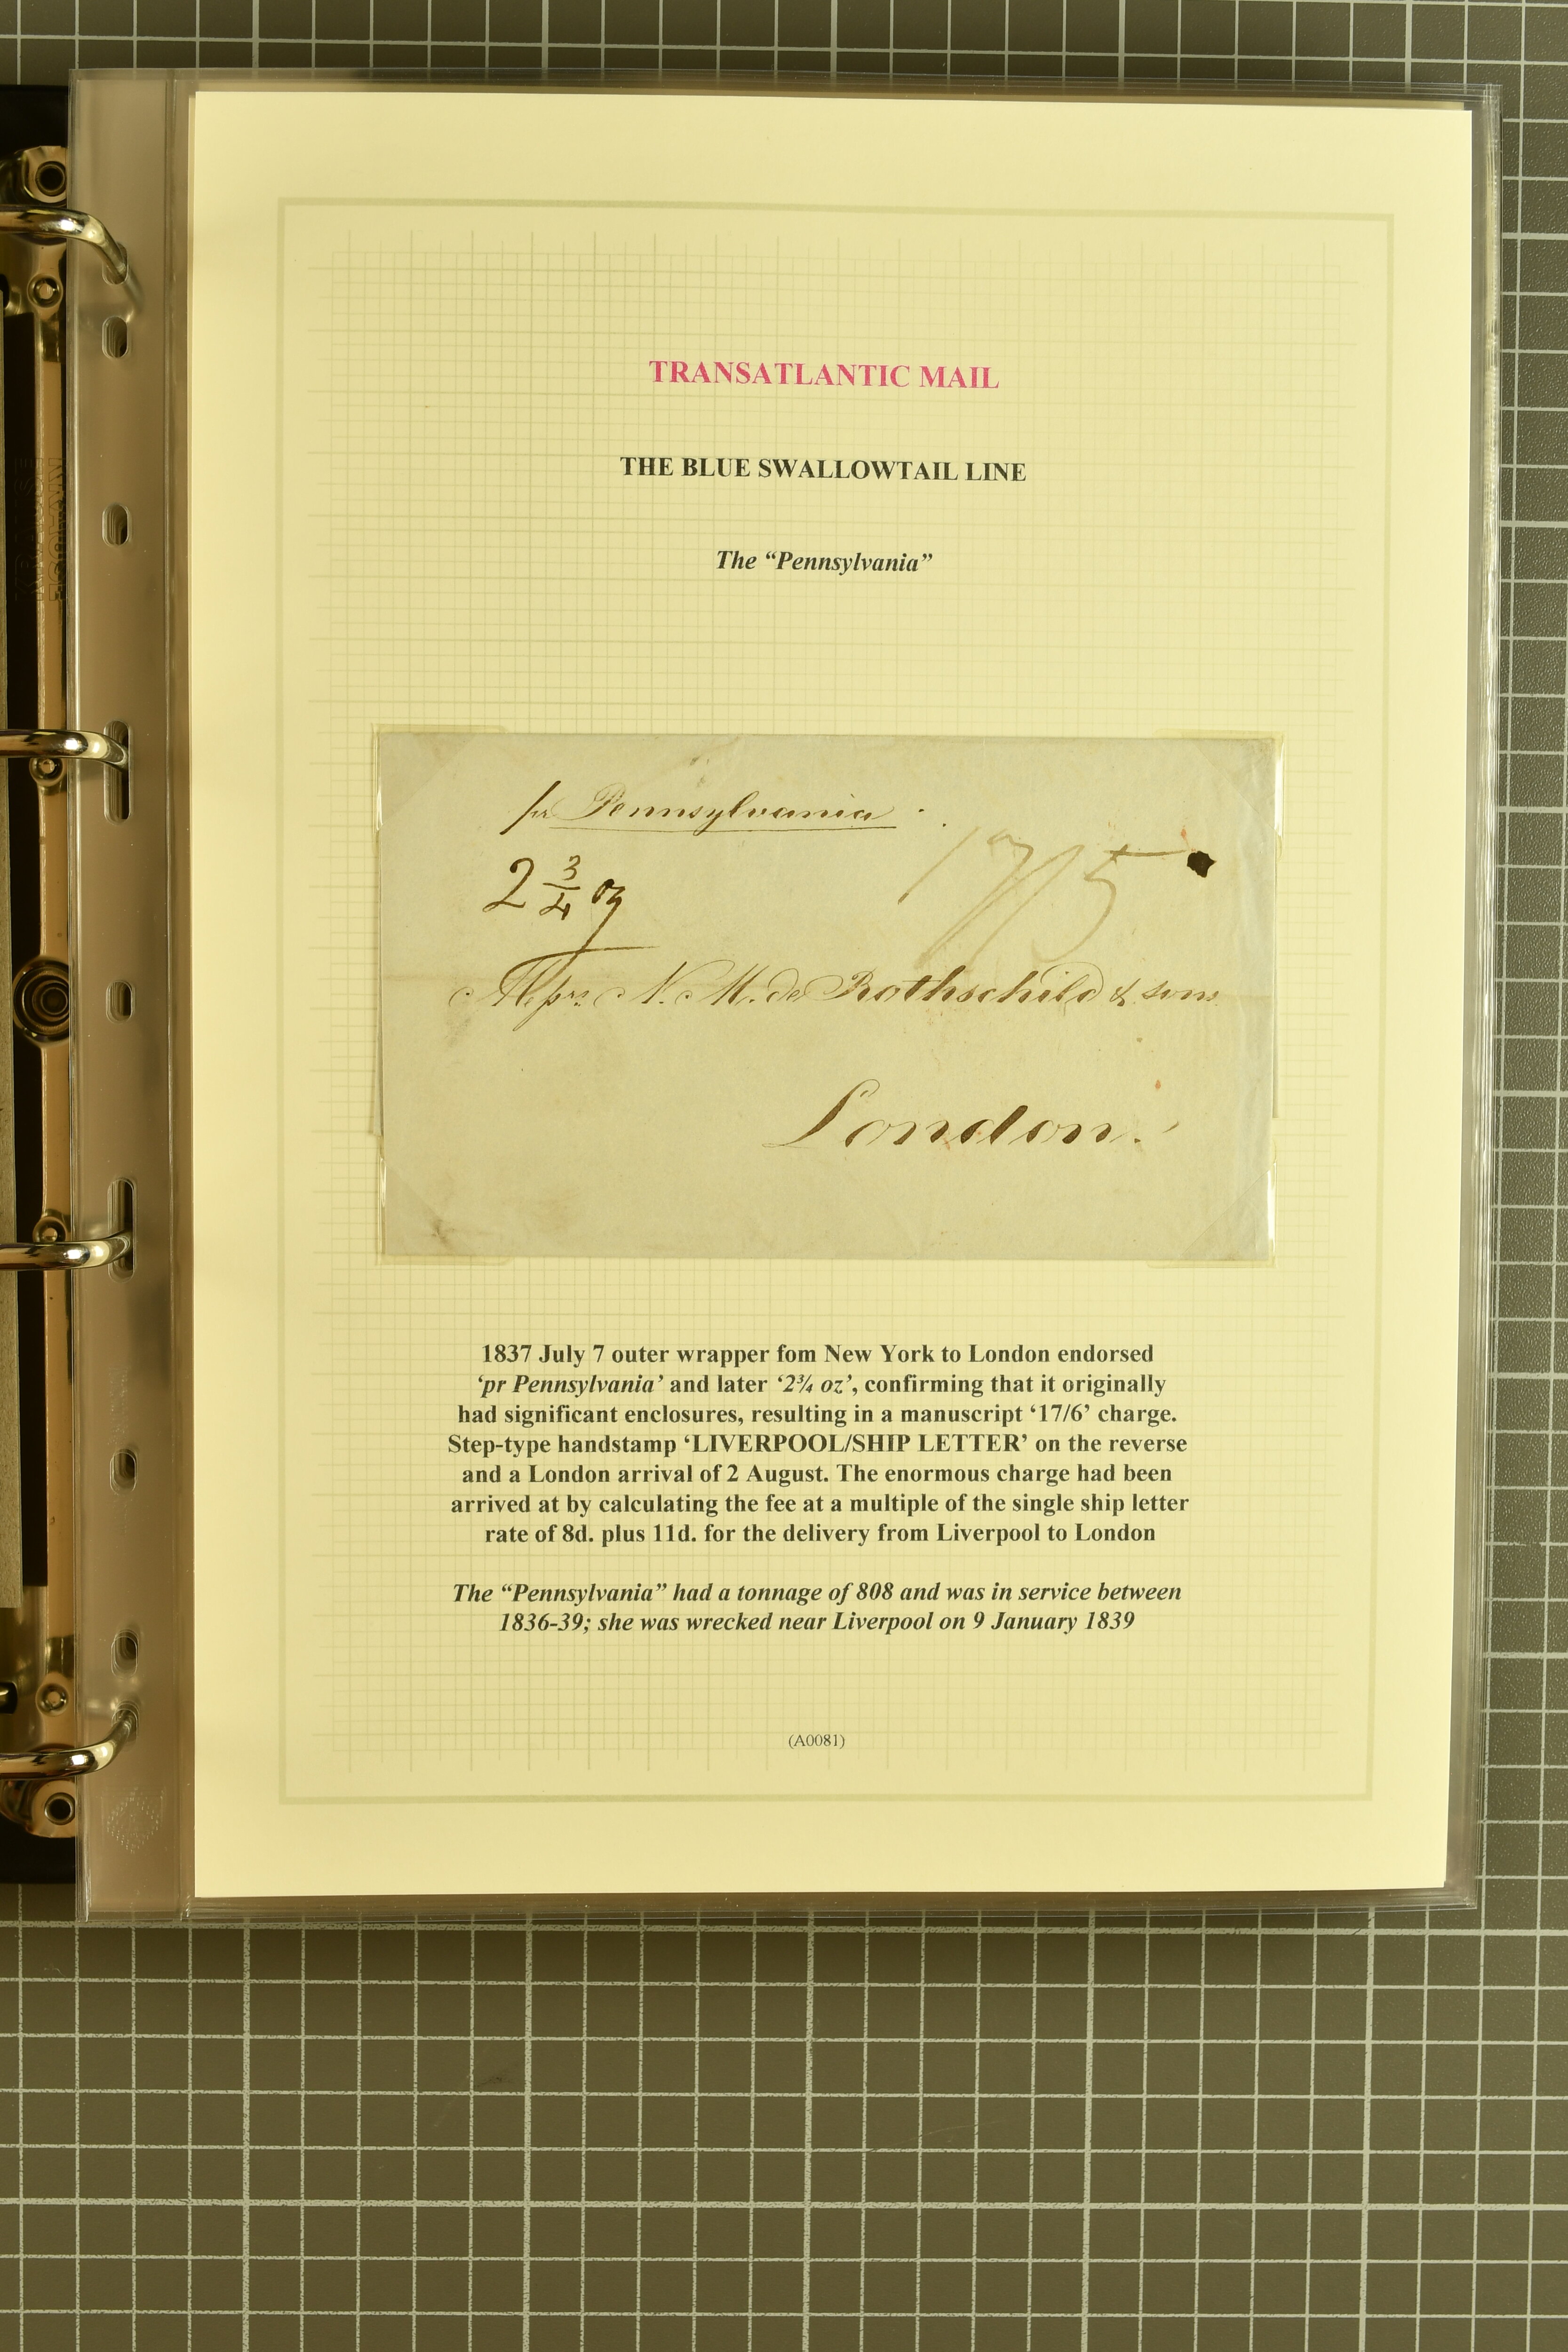 TRANSATLANTIC MAIL
THE BLUE SWALLOWTAIL LINE
The “Pennsylvania”
pr Pennsylvania
17/5
2 3/4 oz
Messrs N. M. de Rothschild & sons
London.
1837 July 7 outer wrapper fom New York to London endorsed
‘pr Pennsylvania’ and later ‘2¾ oz’, confirming that it originally
had significant enclosures, resulting in a manuscript ‘17/6’ charge.
Step-type handstamp ‘LIVERPOOL/SHIP LETTER’ on the reverse
and a London arrival of 2 August. The enormous charge had been
arrived at by calculating the fee at a multiple of the single ship letter
rate of 8d. plus 11d. for the delivery from Liverpool to London
The “Pennsylvania” had a tonnage of 808 and was in service between
1836-39; she was wrecked near Liverpool on 9 January 1839
(A0081)